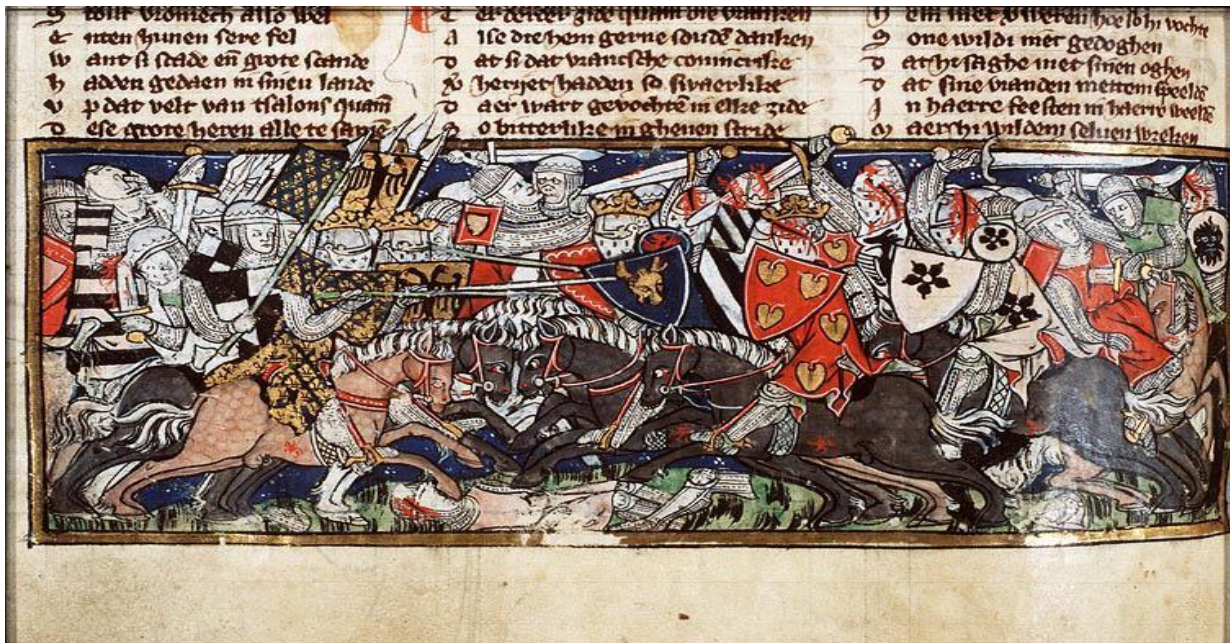 S tout vromech also wel
E nten hunen sere fel
W ant si scade en̄ grote scande
H adden gedaen in sinen lande
V p dat velt van tsalons quamē
D ese grote heren alle te samē
er derder zide quam die vranken
A lse die hem gerne soudē danken
D at si dat vrancsche conincrike
V herjet hadden so swaerlike
D aer wart gevochtē in elke zide
S o bitterlike in ghenen stride
em met zweten hoe so hi vochte
S one wildi met gedoghen
D at hi saghe met sinen oghen
D at sine vianden mettem speeldē
I n haerre feesten in haerre weeldē
M aer hi wildem seluen wreken